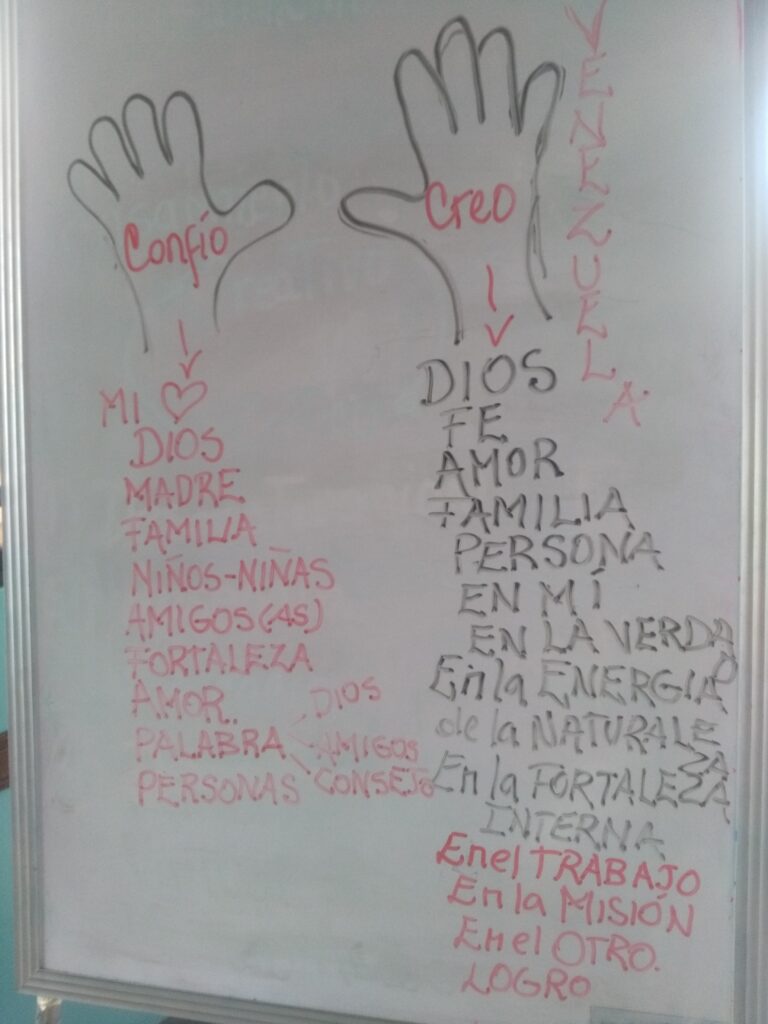 Confío
MI
DIOS
MADRE
FAMILIA
NIÑOS-NIÑAS
AMIGOS(AS)
FORTALEZA
AMOR
PALABRA
DIOS
AMIGOS
CONSEJO
PERSONAS
Creo
DIOS
FE
AMOR
FAMILIA
PERSONA
EN MÍ
EN LA VERDA
D
En la ENERGIA
de la NATURALE
ZA
En la FORTALEZA
INTERNA
En el TRABAJO
En la MISIÓN
En el OTRO.
LOGRO
VENEZUELA